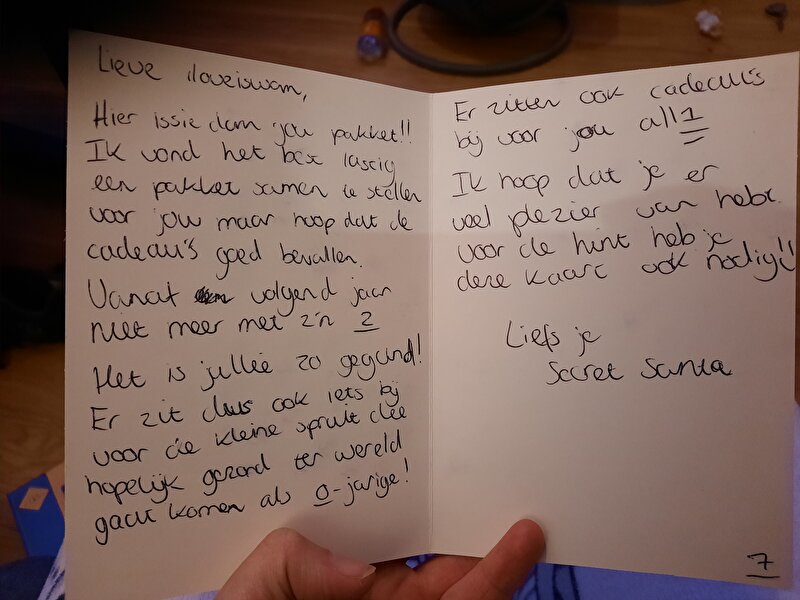 Lieve iloveiswam,
Hier issie dan jou pakket!!
Ik vond het best lastig
een pakket samen te stellen
voor jou maar hoop dat de
cadeau's goed bevallen.
Vanaf volgend jaar
niet meer met z'n 2
Het is jullie zo gegund!
Er zit dus ook iets bij
voor de kleine spruit die
hopelijk gezond ter wereld
gaat komen als 0-jarige!
Er zitten ook cadeau's
bij voor jou all1
Ik hoop dat je er
veel plezier van hebt.
voor de hint heb je
deze kaart ook nodig!!
Liefs je
Secret Santa
7